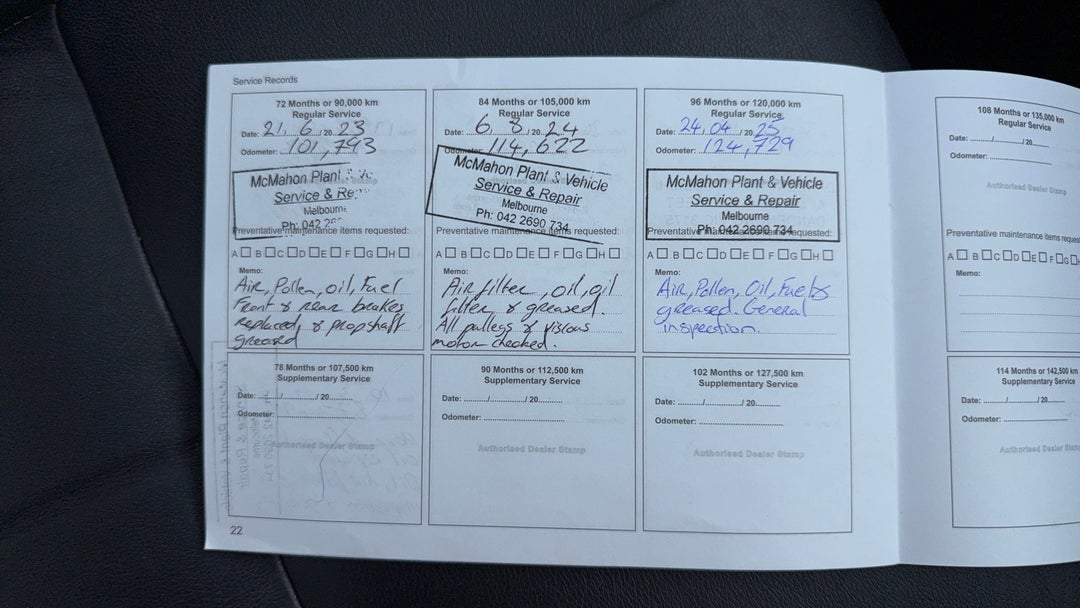 Service Records
72 Months or 90,000 km
Regular Service
Date: 21/6/2023
Odometer: 101,793
McMahon Plant &
Service & Re
Melbourne
Ph: 042
Preventative maintenance items requested:
A B C D E F G H
Memo:
Air, Pollen, oil, Fuel
Front & rear brakes
replaced, & propshaft
greased
84 Months or 105,000 km
Regular Service
Date: 6/8/2024
Odometer: 114,622
McMahon Plant & Vehicle
Service & Repair
Melbourne
Ph: 042 2690 734
Preventative maintenance items requested:
A B C D E F G H
Memo:
Air filter, oil, oil
filter & greased.
All pulleys & viscous
motor checked.
96 Months or 120,000 km
Regular Service
Date: 24/04/2025
Odometer: 124,729
McMahon Plant & Vehicle
Service & Repair
Melbourne
Ph: 042 2690 734
Preventative maintenance items requested:
A B C D E F G H
Memo:
Air, Pollen, Oil, Fuel &
greased. General
inspection.
108 Months or 135,000 km
Regular Service
Date: / /20
Odometer:
Authorised Dealer Stamp
Preventative maintenance items request
A B C D E F G
Memo:
78 Months or 107,500 km
Supplementary Service
Date: / /20
Odometer:
Authorised Dealer Stamp
90 Months or 112,500 km
Supplementary Service
Date: / /20
Odometer:
Authorised Dealer Stamp
102 Months or 127,500 km
Supplementary Service
Date: / /20
Odometer:
Authorised Dealer Stamp
114 Months or 142,500 km
Supplementary Service
Date: / /20
Odometer:
Authorised Dealer Stamp
22